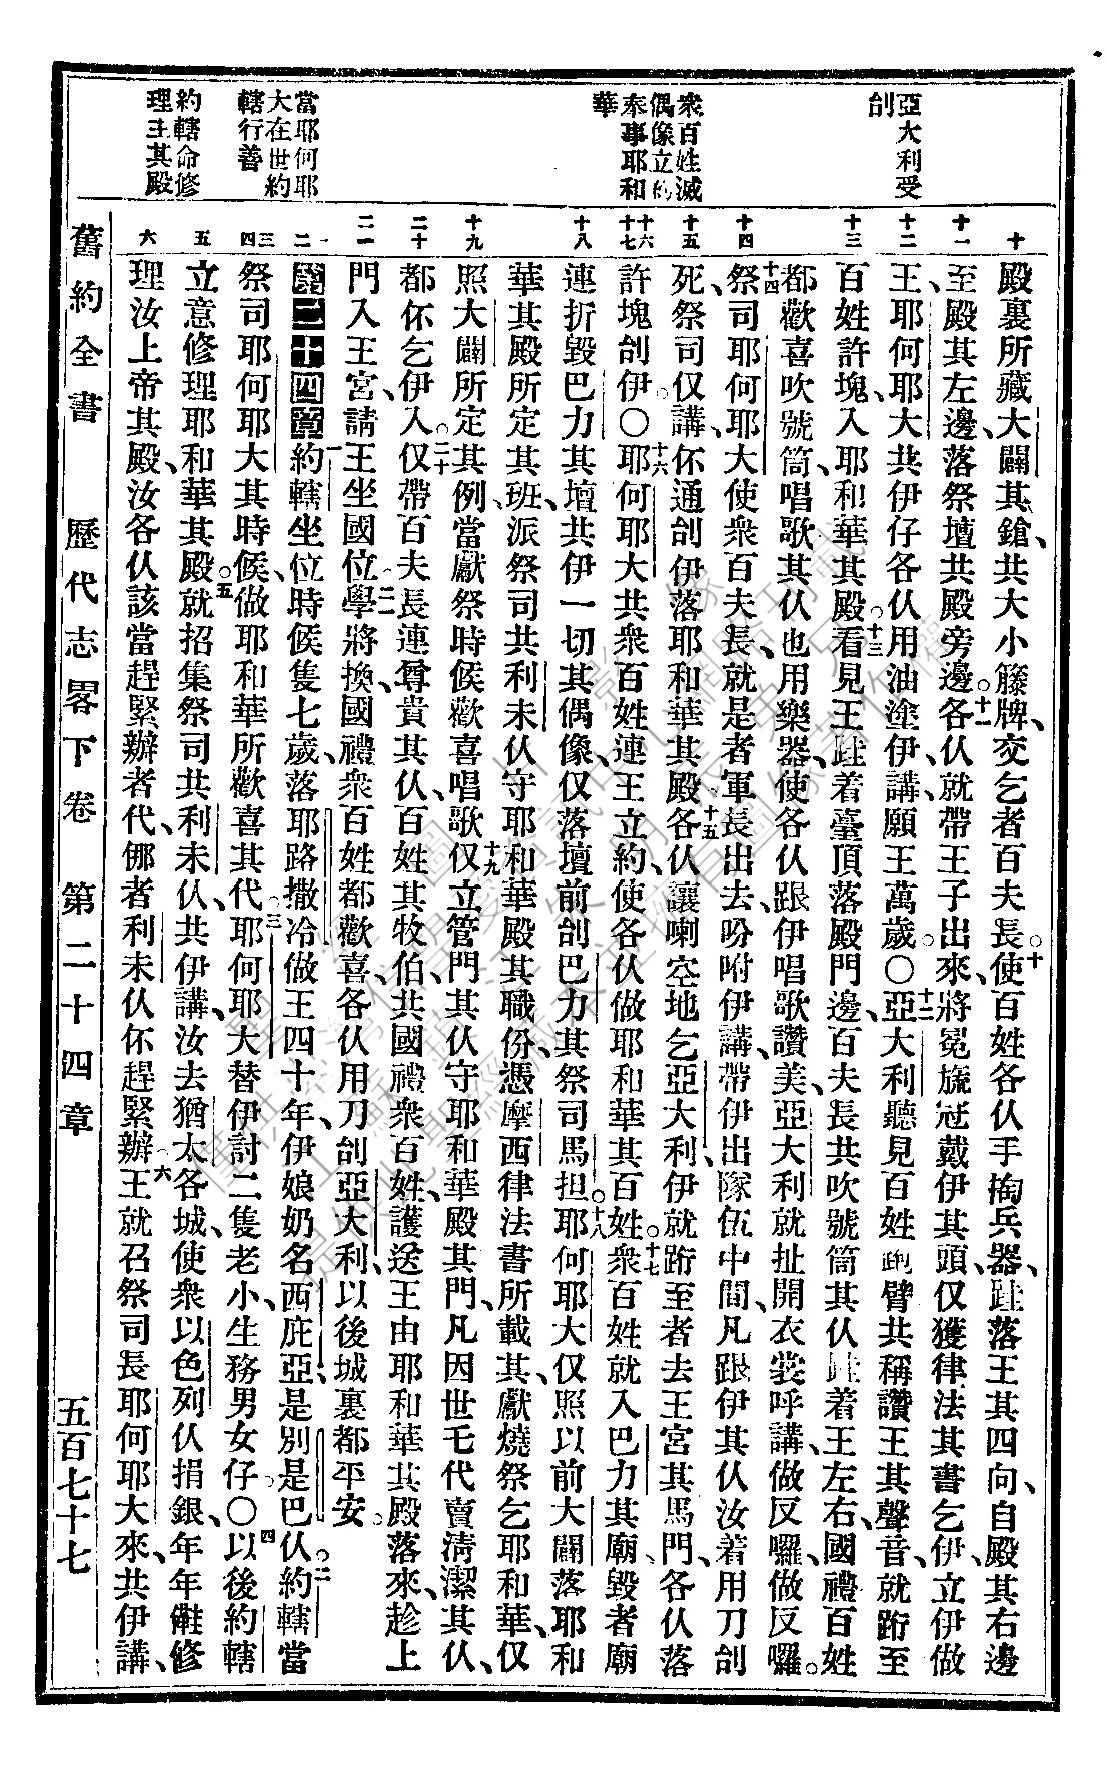 亞大利受
刣
衆百姓滅
偶像立約
奉事耶和
華
當耶何耶
大在世約
轄行善
約轄命修
理主其殿
十
十一
十二
十三
十四
十五
十六
十七
十八
十九
二十
二一
一
二
三
四
五
六
殿裏所藏大闢其鎗、共大小籐牌、交乞者百夫長。十使百姓各仈手掏兵器、跬落王其四向、自殿其右邊
至殿其左邊、落祭壇共殿旁邊。十一各仈就帶王子出來、將冕旒冠戴伊其頭、仅獲律法其書乞伊、立伊做
王、耶何耶大共伊仔各仈用油塗伊、講、願王萬歲。〇十二亞大利聽見百姓跑臂共稱讚王其聲音、就跨至
百姓許塊、入耶和華其殿。十三看見王跬着臺頂落殿門邊、百夫長共吹號筒其仈跬着王左右、國禮百姓
都歡喜吹號筒、唱歌其仈也用樂器、使各仈跟伊唱歌讚美、亞大利就扯開衣裳呼講、做反囉、做反囉。
十四祭司耶何耶大使衆百夫長、就是者軍長出去、吩咐伊講、帶伊出隊伍中間、凡跟伊其仈汝着用刀刣
死、祭司仅講、伓通刣伊落耶和華其殿。十五各仈讓喇空地乞亞大利、伊就跨至者去王宮其馬門、各仈落
許塊刣伊。〇十六耶何耶大共衆百姓、連王立約、使各仈做耶和華其百姓。十七衆百姓就入巴力其廟、毀者廟
連折毀巴力其壇共伊一切其偶像、仅落壇前刣巴力其祭司馬担。十八耶何耶大仅照以前大闢落耶和
華其殿所定其班、派祭司共利未仈守耶和華殿其職份、憑摩西律法書所載其、獻燒祭乞耶和華、仅
照大闢所定其例、當獻祭時候歡喜唱歌。十九仅立管門其仈守耶和華殿其門、凡因世乇代賣淸潔其仈、
都伓乞伊入。二十仅帶百夫長連尊貴其仈、百姓其牧伯、共國禮衆百姓、護送王由耶和華其殿落來、趁上
門入王宮、請王坐國位。二一學將換、國禮衆百姓都歡喜、各仈用刀刣亞大利、以後城裏都平安。
第二十四章 一約轄坐位時候隻七歲、落耶路撒冷做王四十年、伊娘奶名西庇亞、是別是巴仈。二約轄當
祭司耶何耶大其時候、做耶和華所歡喜其代。三耶何耶大替伊討二隻老小、生務男女仔。〇四以後約轄
立意修理耶和華其殿。五就招集祭司共利未仈、共伊講、汝去猶太各城、使衆以色列仈捐銀、年年備修
理汝上帝其殿、汝各仈該當趕緊辦者代、㑚者利未仈伓趕緊辦。六王就召祭司長耶何耶大來、共伊講、
舊約全書　歷代志畧下卷　第二十四章　五百七十七